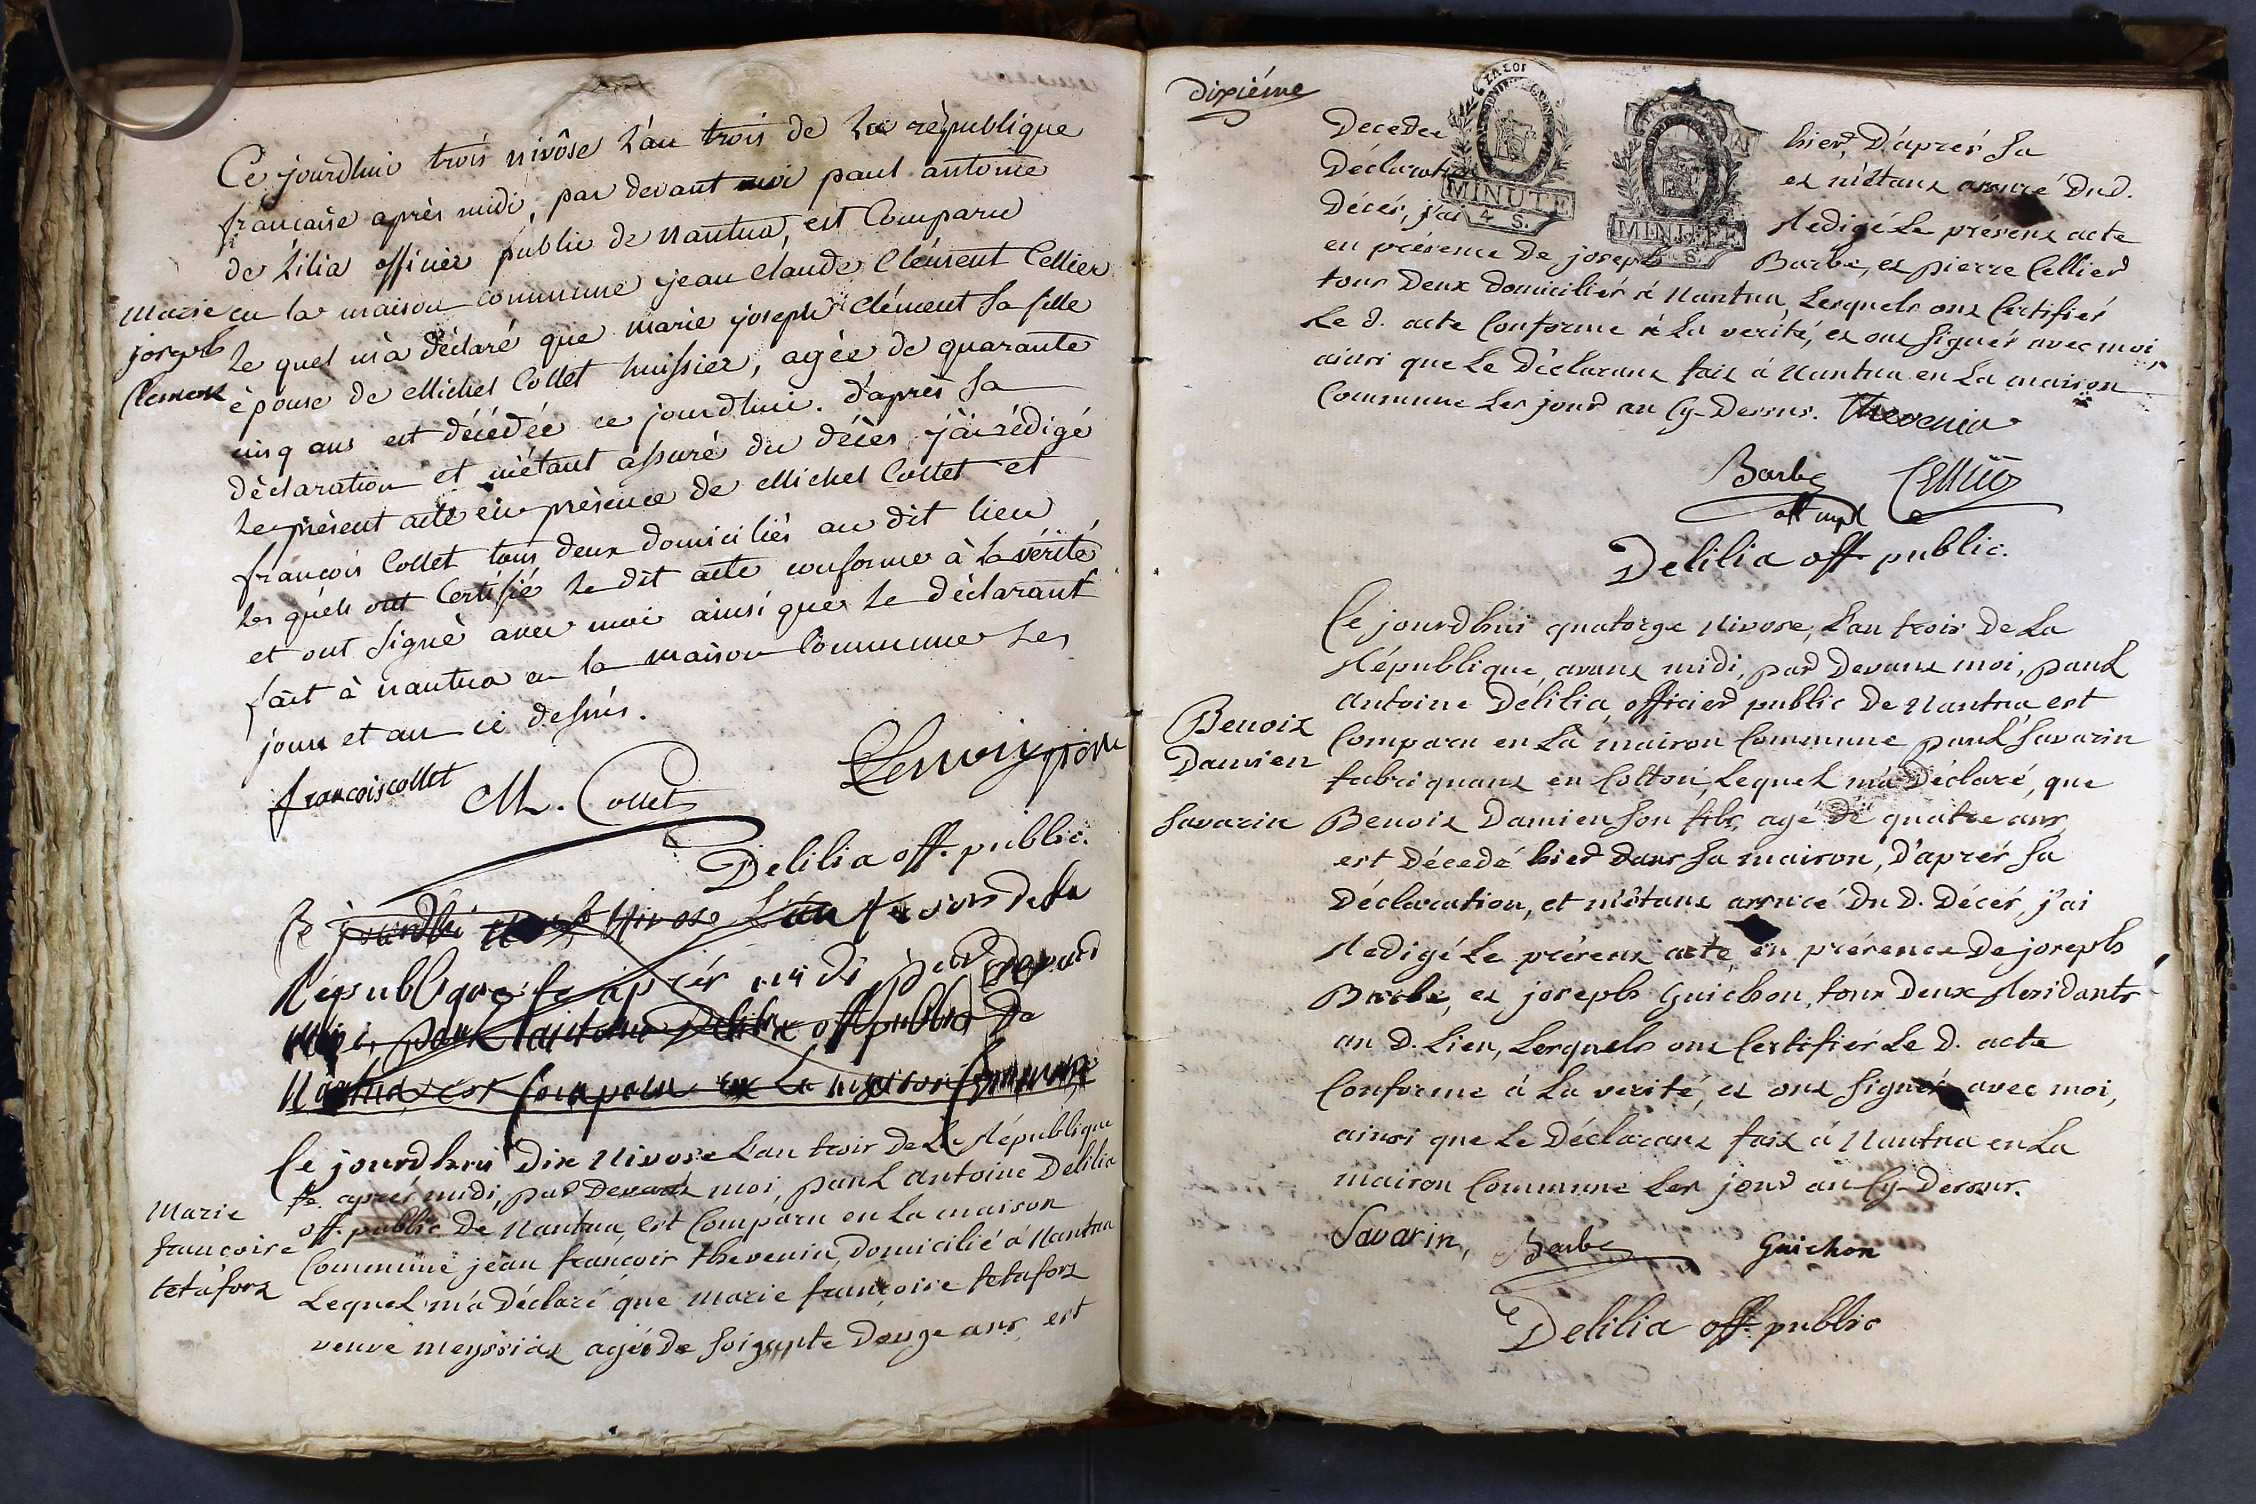 Ce jourdhui trois nivôse l'an trois de la république
francaise après midi, par devant moi paul antoine
de Lilia officier public de nantua, est Comparu
en la maison commune jean claude Clément Cellier
Marie
joseph
Clement
le quel m'a déclaré que marie joseph clément sa fille
épouse de Michel Collet huissier, agée de quarante
cinq ans est décédée ce jourdhui. d'après sa
déclaration et m'étant assuré du décès j'ai rédigé
le présent acte en présence de Michel Collet et
françois Collet tous deux domiciliés au dit lieu
les quels ont Certifié le dit acte conforme à la vérité
et ont signé avec moi ainsi que le déclarant
fait à nantua en la maison Commune les
jour et an ci dessus.
francoiscollet M. Collet
Delilia off. public.
Ce jourdhui Nivose L'an trois de La
République fe après midi par devant
moi, paul antoine Delilia off public De
Nantua, est Comparu en La maison Commune
Ce jourdhui Dix Nivose Lan trois De La République
fe. après midi, par Devant moi, paul Antoine Delilia
off. public De Nantua, est Comparu en La maison
Commune jean francois thevenin, Domicilié á Nantua
Marie
francoise
tetafort
Lequel m'a Déclaré que marie françoise tetafort
veuve meyssiat agée De soixante Douze ans, est
Dixiéme
MINUTE
4 S.
MINUTE
Decedee hier, D'après sa
Déclaration et m'étant assuré Du D.
Décès, j'ai Redigé Le présent acte
en présence De joseph Barbe, et pierre Cellier
tous Deux Domiciliés à Nantua, Lesquels ont Certifiés
Le D. acte Conforme à La verité, et ont signés avec moi,
ainsi que Le Déclarant fait á Nantua en La maison
Commune Les jour an Cy-Dessus. Thevenin
Barbe Cellier
off mpl
Delilia off public.
Ce jourdhui quatorze Nivose, L'an trois De La
République, avant midi, par Devant moi, paul
Antoine Delilia, officier public De Nantua est
Comparu en La maison Commune paul Savarin
fabriquant en Cotton, Lequel m'a Déclaré, que
Benoit
Damien
Savarin
Benoit Damien son fils, agé De quatre ans,
est Décedé hier Dans sa maison, D'après sa
Déclaration, et m'étant assuré Du D. Décès, j'ai
Redigé Le présent acte en présence De joseph
Barbe, et joseph Guichon, tous Deux Residants
au D. Lieu, Lesquels ont Certifiés Le D. acte
Conforme á La verité, et ont signés avec moi,
ainsi que Le Déclarant fait á Nantua en La
maison Commune Les jour an Cy-Dessus.
Savarin, Barbe Guichon
Delilia off. public